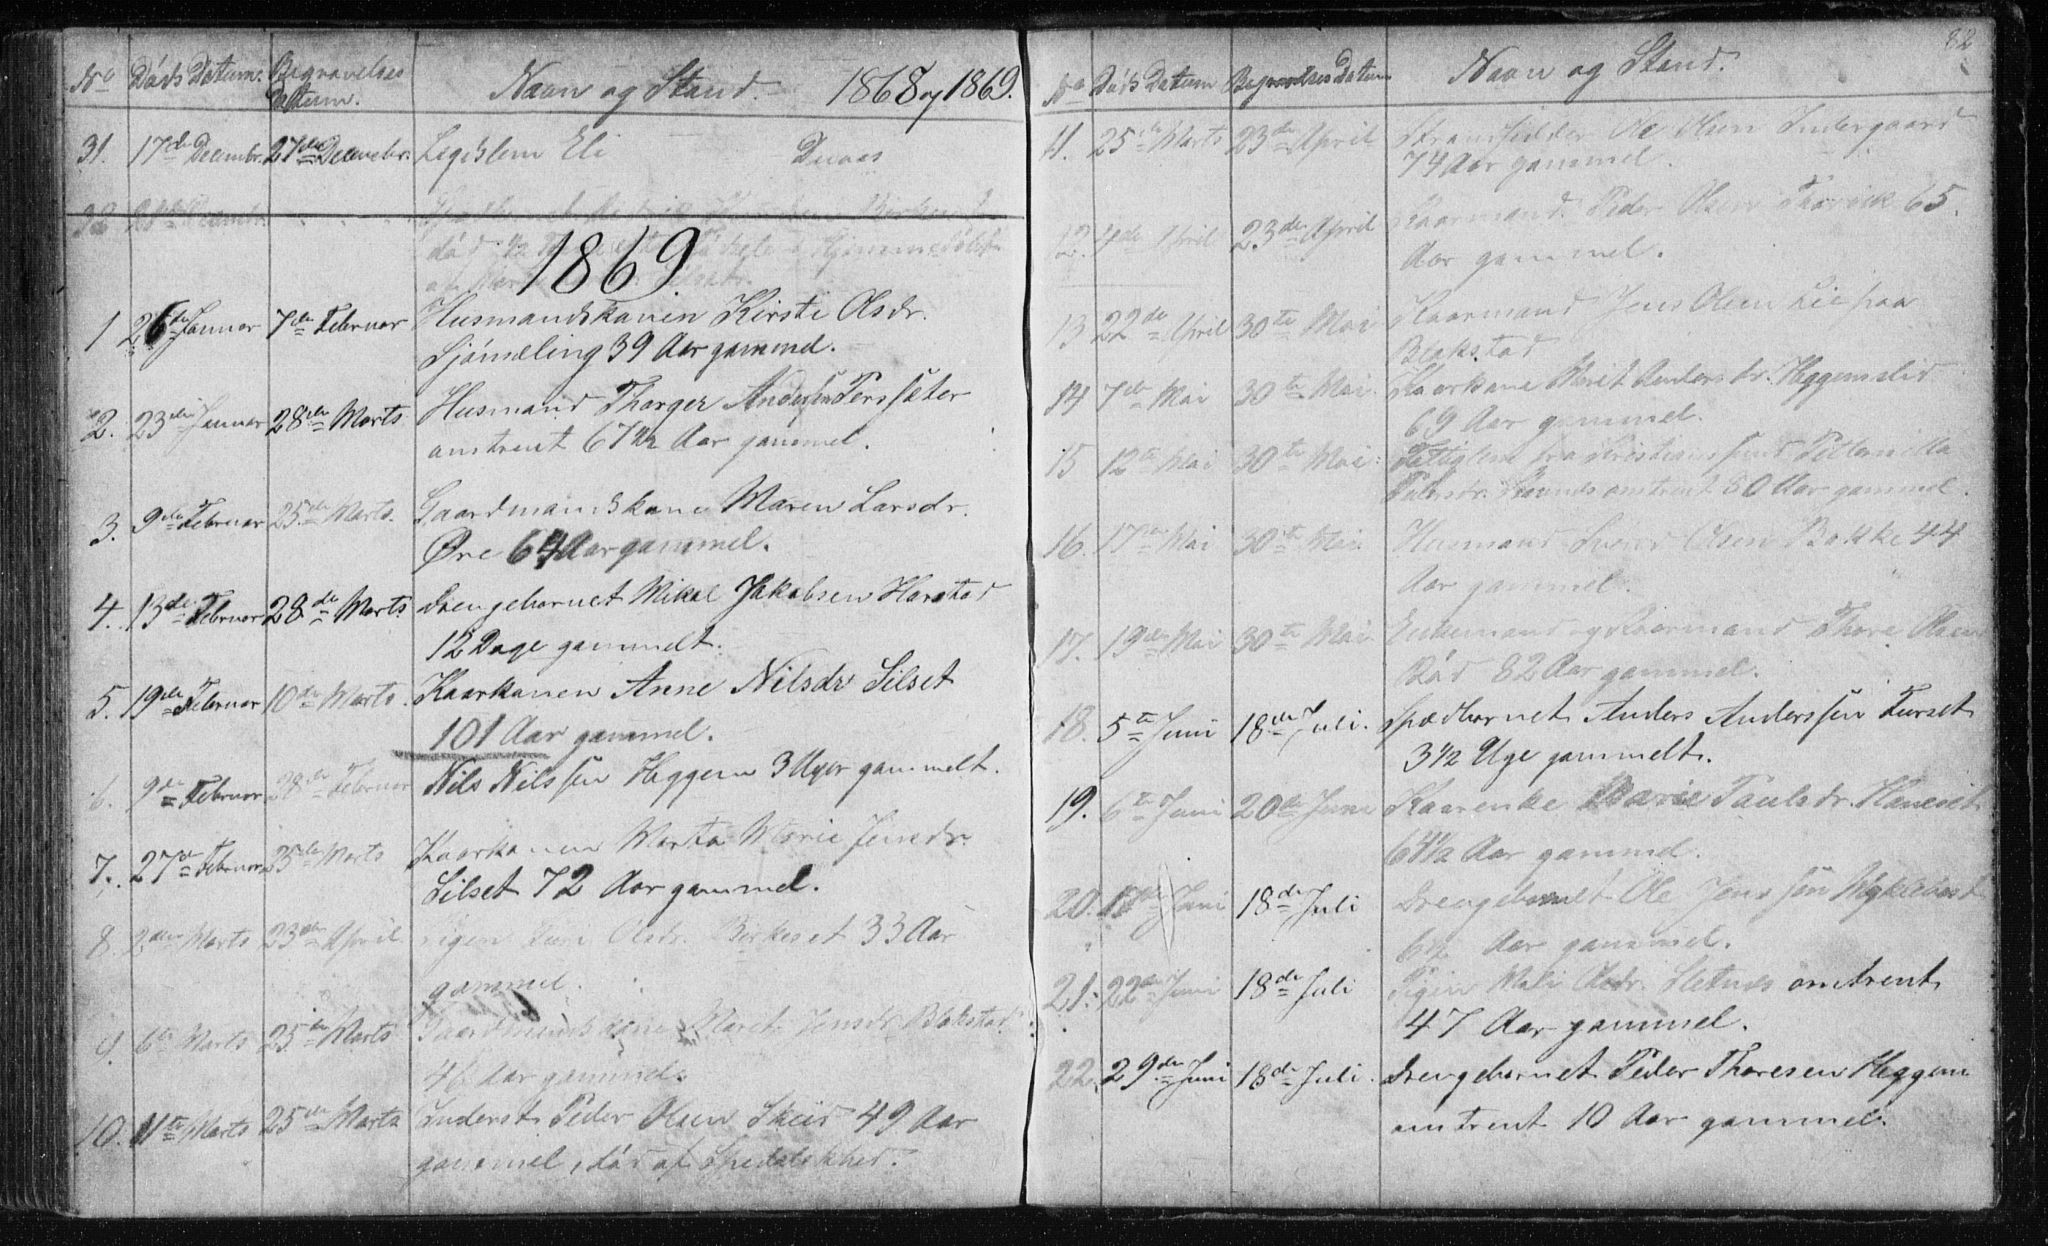 No Døds Datum. Begravelses Datum. Navn og Stand. 1868 og 1869.
31. 17de Decembr. 27de Decembr. Legdslem Eli Duaas
32 Decembr.
1869.
1 26de Januar 7de Februar Husmandskonen Kirsti Olsdr.
Sjømæling 39 Aar gammel.
2. 23de Januar 28de Marts. Husmand Thorger Anderssen Perssæter
omtrent 67 1/2 Aar gammel.
3. 9de Februar 25de Marts. Gaardmandskone Maren Larsdr.
Øre 64 Aar gammel.
4. 13de Februar 28de Marts Drengebarnet Mikal Jakobsen Harstad
12 Dage gammelt.
5. 19de Februar 10de Marts. Kaarkonen Anne Nilsdr Silset
101 Aar gammel.
6. 9de Februar 28de Februar Nils Nilssen Heggem 3 Uger gammelt.
7. 27de Februar 25de Marts Kaarkonen Marta Marie Jensdr.
Silset 72 Aar gammel.
8. 2den Marts 23de April Pigen Guri Olsdr. Birkeset 33 Aar
gammel.
9. 6te Marts 25de Marts Gaardmandskone Marit Jensdr Blakstad
46 Aar gammel.
10. 11te Marts 25de Marts Inderst Peder Olsen Skeid 49 Aar
gammel, død af Spedalskhed.
82
No Døds Datum Begravelses Datum Navn og Stand.
11. 25de Marts 23de April Strandsidder Ole Olsen Indergaard
74 Aar gammel.
12. 4de April 23de April Kaarmand Peder Olsen Thorvik 65
Aar gammel.
13 22de April 30te Mai Kaarmand Jens Olsen Lie paa
Blakstad
14 7de Mai 30te Mai. Kaarkone Marit Andersdr. Heggemslid
69 Aar gammel.
15 12te Mai 30te Mai. Fattiglem fra Kristianssund Petternilla
Pedersdr. omtrent 80 Aar gammel.
16. 17de Mai 30te Mai. Husmand Sivert Olsen Bakke 44
Aar gammel.
17. 19de Mai 30te Mai. Enkemand og Kaarmand Thore Olsen
Rød 82 Aar gammel.
18. 5te Juni 18de Juli. Spædbarnet Anders Anderssen Furset
3 1/2 Uge gammelt.
19. 6te Juni 20de Juni Kaarenke Marie Paulsdr. Haneset
64 1/2 Aar gammel.
20. 17de Juni 18de Juli Drengebarnet Ole Jenssen Myklebost
6 1/2 Aar gammel.
21. 22de Juni 18de Juli Pigen Mali Olsdr. Sletnes omtrent
47 Aar gammel.
22. 29de Juni 18de Juli. Drengebarnet Peder Thoresen Heggem
omtrent 10 Aar gammel.